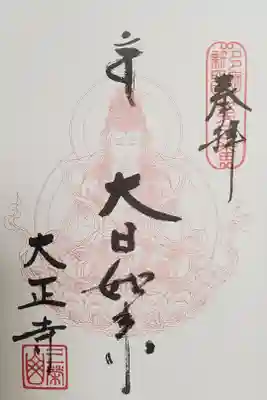 奉拝
大日如来
大正寺